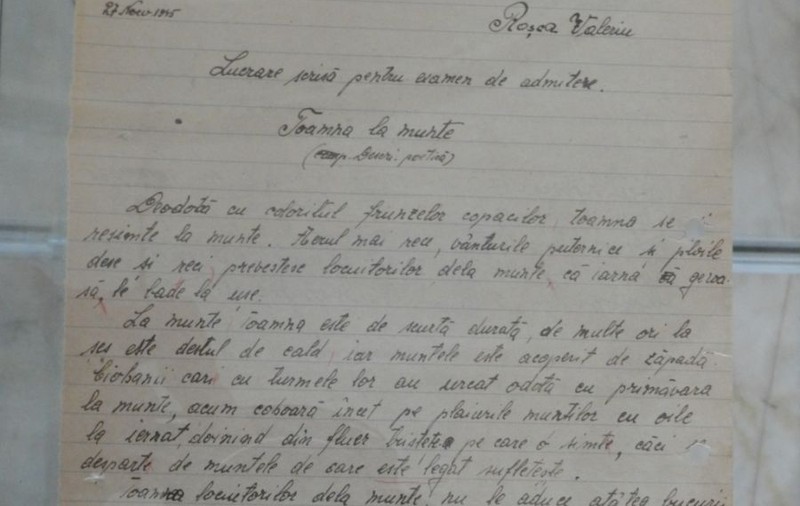 27 Nov. 1945
Roșca Valeriu
Lucrare scrisă pentru examen de admitere.
Toamna la munte
(comp. Descri. poetică)
Deodată cu coloritul frunzelor copacilor, toamna se
resimte la munte. Aerul mai rece, vânturile puternice și ploile
dese și reci, prevestesc locuitorilor dela munte, că iarna geroa-
să, le bate la ușe.
La munte toamna este de scurtă durată, de multe ori la
șes este destul de cald, iar muntele este acoperit de zăpadă
Ciobanii cari cu turmele lor au urcat odată cu primăvara
la munte, acum coboară încet pe plaiurile munților cu oile
la iernat, doinind din fluer tristețea pe care o simte, căci se
desparte de muntele de care este legat sufletește.
Toamna locuitorilor dela munte, nu le aduce atâtea bucurii